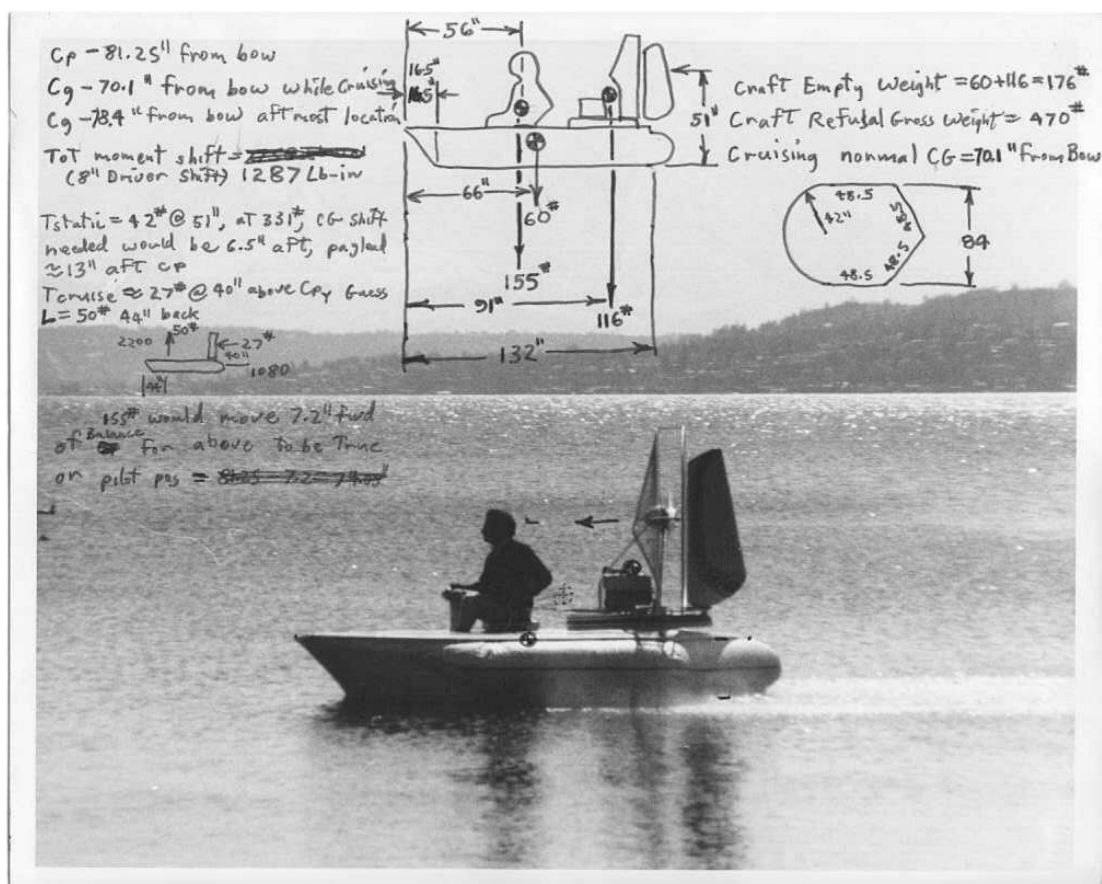 Cp - 81.25" from bow
Cg - 70.1" from bow while Cruising
Cg - 78.4" from bow aftmost location
Tot moment shift =
(8" Driver Shift) 1287 Lb-in
Tstatic = 42# @ 51", at 331#, CG shift
needed would be 6.5" aft, payload
≈ 13" aft cp
Tcruise ≈ 27# @ 40" above Cpy Guess
L = 50# 44" back
2200
50#
27#
40"
1080
44"
155# would move 7.2" fwd
of Balance for above to be True
or pilot pos = 81.25 - 7.2 = 74.05"
56"
16.5"
16.5"
51"
66"
60#
155#
91"
116#
132"
Craft Empty Weight = 60+116 = 176#
Craft Refusal Gross Weight = 470#
Cruising normal CG = 70.1" From Bow
48.5
42"
48.5
84
48.5
48.5